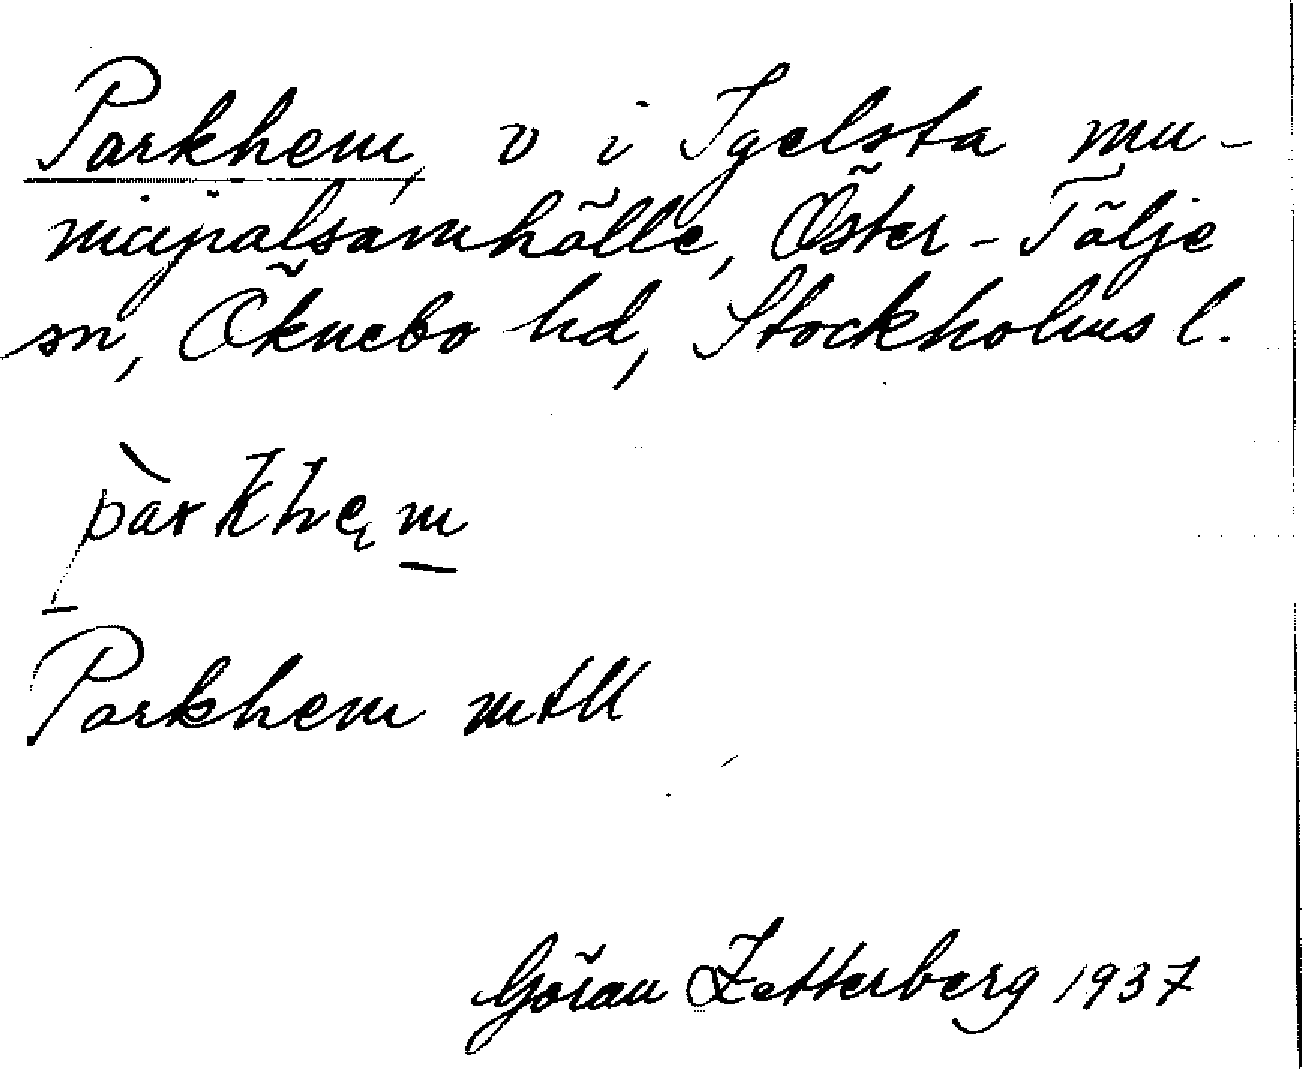 Parkhem, v i Igelsta mu-
nicipalsamhälle, Öster-Tälje
sn, Öknebo hd, Stockholms l.
pàrkhęm
Parkhem mtll
Göran Zetterberg 1937